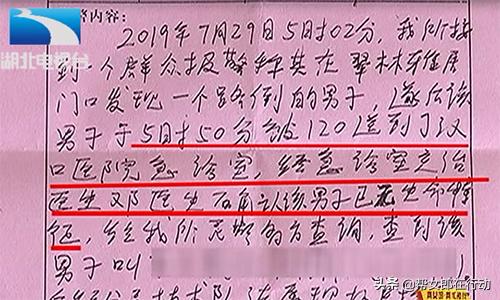 内容：
湖北电视台
2019年7月29日5时02分，我所接
到个群众报警称其在翠林雅居
门口发现一个路倒的男子，遂后该
男子于5时50分被120送到了汉
口医院急诊室，经急诊室主治
医生邓医生确认该男子已无生命体
征，经我所民警多方查询，查到该
男子叫
技术队法医现场
头条 @帮女郎在行动